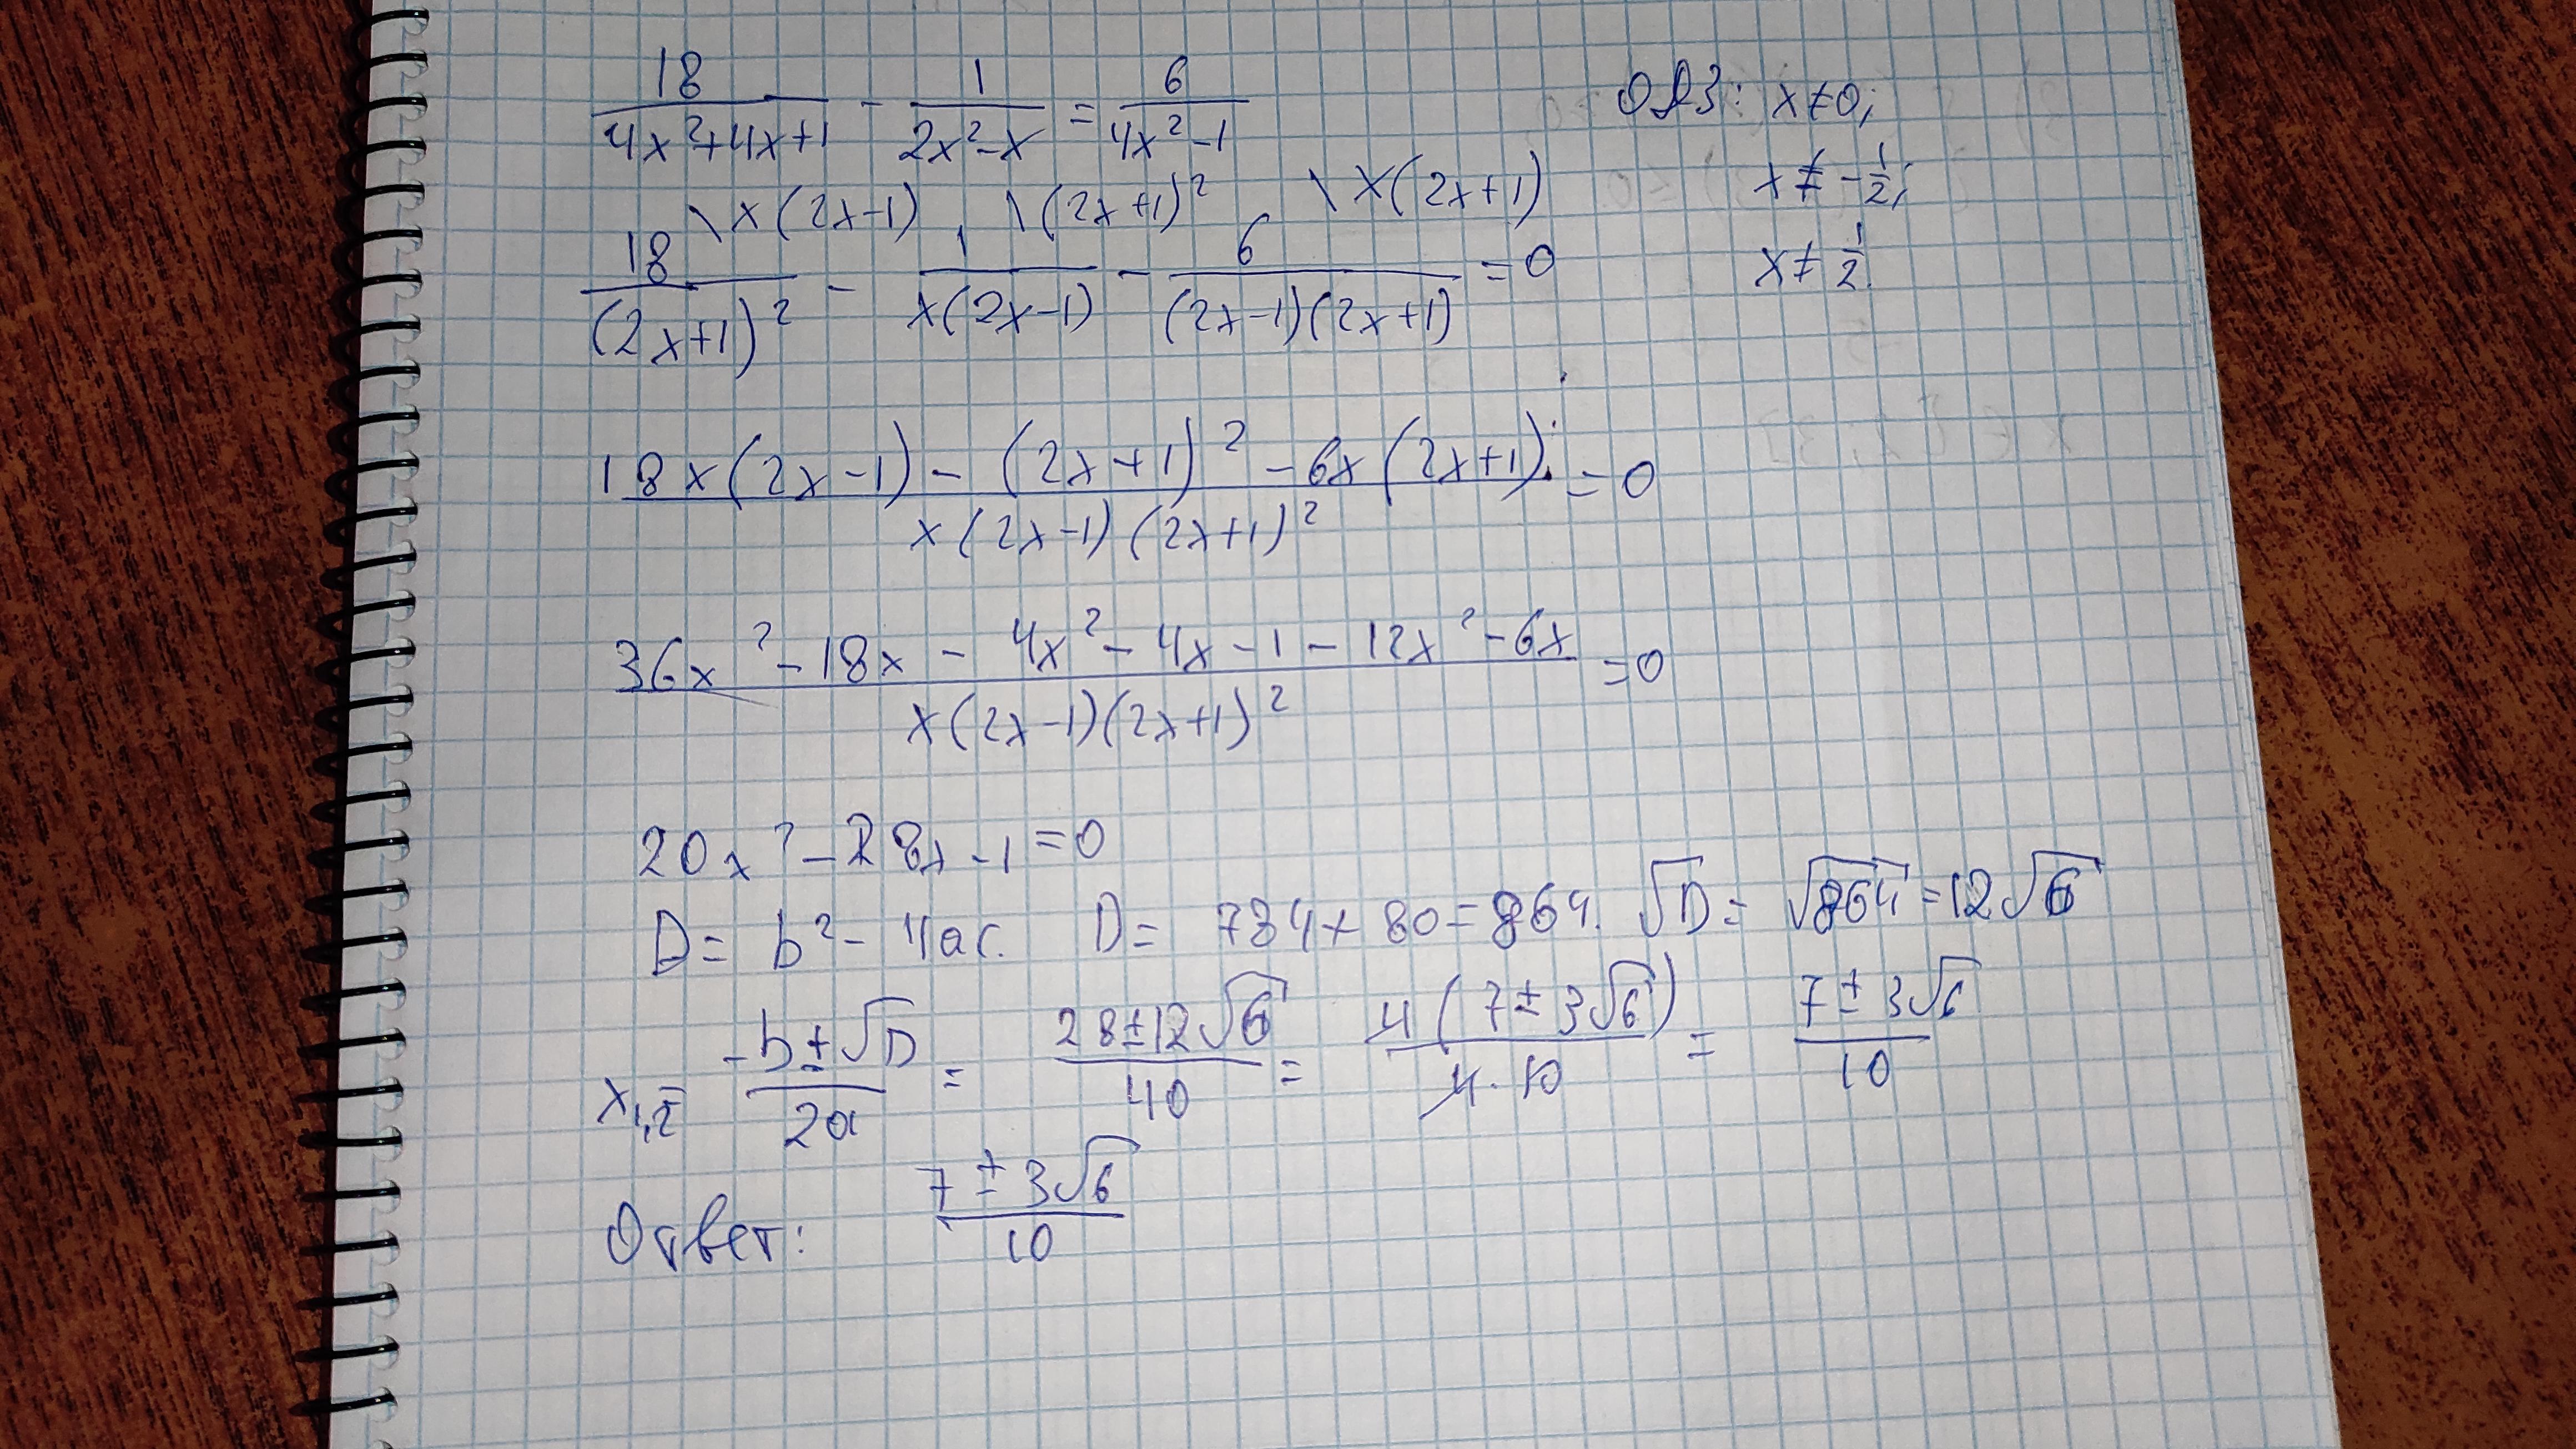 18/(4x²+4x+1) - 1/(2x²-x) = 6/(4x²-1)
ОДЗ: x≠0;
x≠-1/2;
x≠1/2.
18\x(2x-1)/(2x+1)² - 1\(2x+1)²/x(2x-1) - 6\x(2x+1)/(2x-1)(2x+1) = 0
18x(2x-1) - (2x+1)² - 6x(2x+1)/x(2x-1)(2x+1)² = 0
36x² - 18x - 4x² - 4x - 1 - 12x² - 6x/x(2x-1)(2x+1)² = 0
20x² - 28x - 1 = 0
D = b² - 4ac. D = 784 + 80 = 864. √D = √864 = 12√6
x1,2 = (-b±√D)/2a = (28±12√6)/40 = 4(7±3√6)/4·10 = (7±3√6)/10
Ответ: (7±3√6)/10